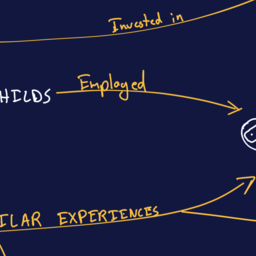 Invested in
HILDS
Employed
ILAR EXPERIENCES